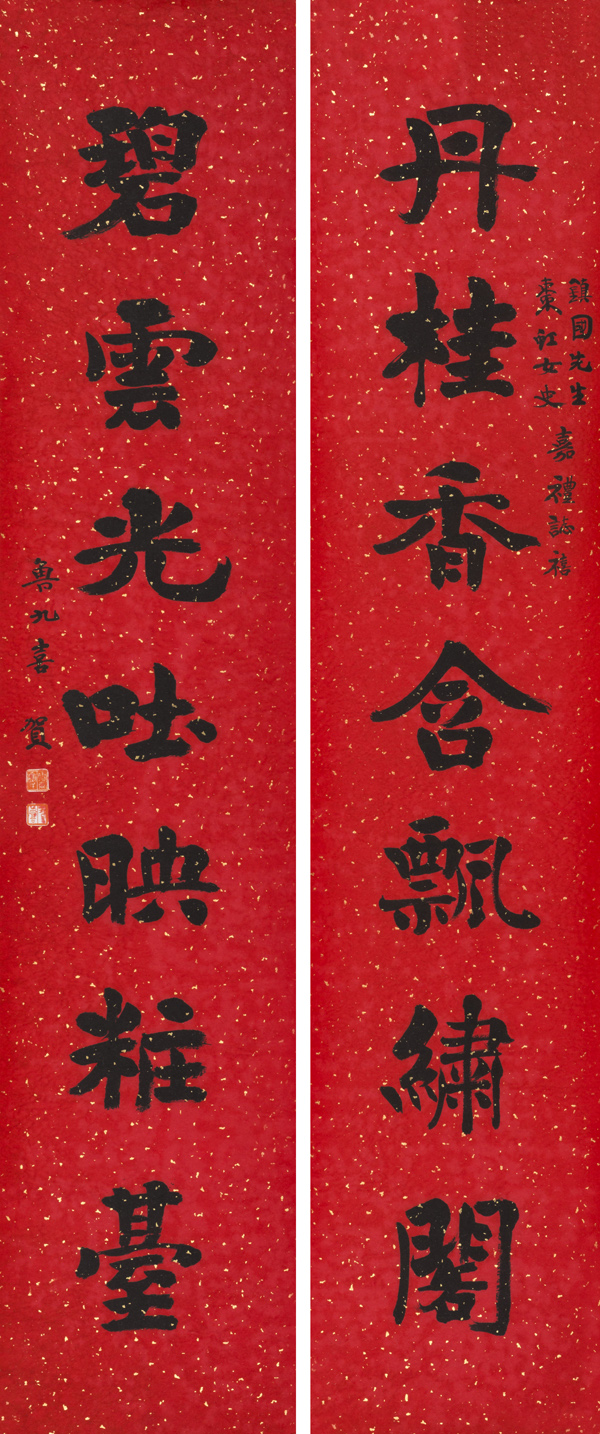 鎮國先生
棗紅女史 嘉禮誌禧
丹桂香含飄繡閣
碧雲光吐映粧臺
魯九喜 賀